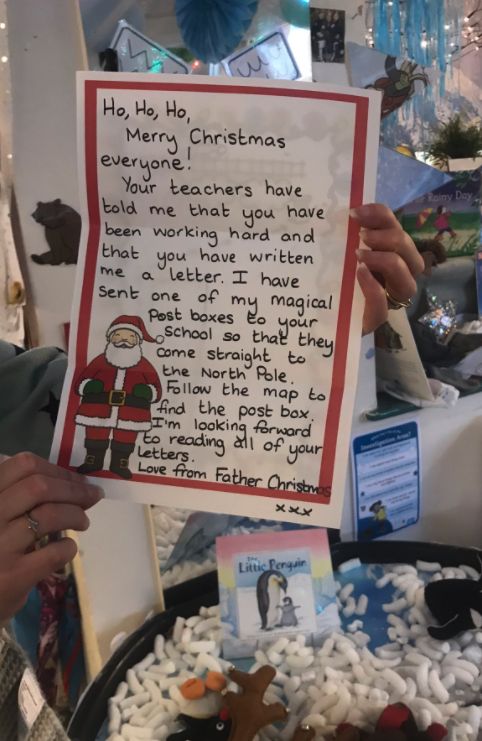 Ho, Ho, Ho,
Merry Christmas
everyone!
Your teachers have
told me that you have
been working hard and
that you have written
me a letter. I have
sent one of my magical
Post boxes to your
School so that they
come straight to
the North Pole.
Follow the map to
find the post box.
I'm looking forward
to reading all of your
letters.
Love from Father Christmas
xxx
Rainy Day
Investigation Area!
The
Little Penguin